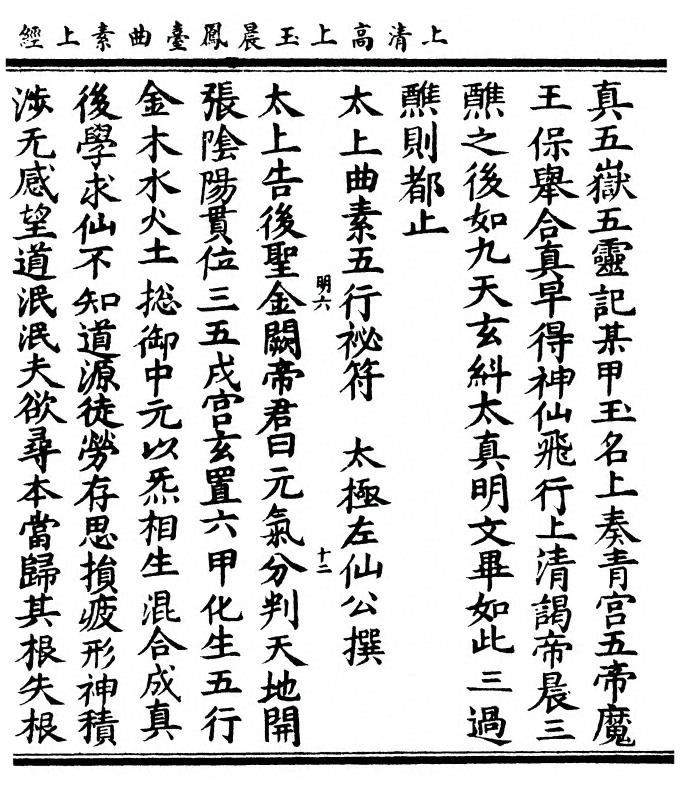 上清高上玉晨鳳臺曲素上經
真五嶽五靈記某甲玉名上奏青宮五帝魔
王保舉合真早得神仙飛行上清謁帝晨三
醮之後如九天玄糾太真明文畢如此三過
醮則都止
太上曲素五行祕符　太極左仙公撰
明六
十二
太上告後聖金闕帝君曰元氣分判天地開
張陰陽貫位三五戌宮玄置六甲化生五行
金木水火土捴御中元以炁相生混合成真
後學求仙不知道源徒勞存思損疲形神積
涉无感望道泯泯夫欲尋本當歸其根失根